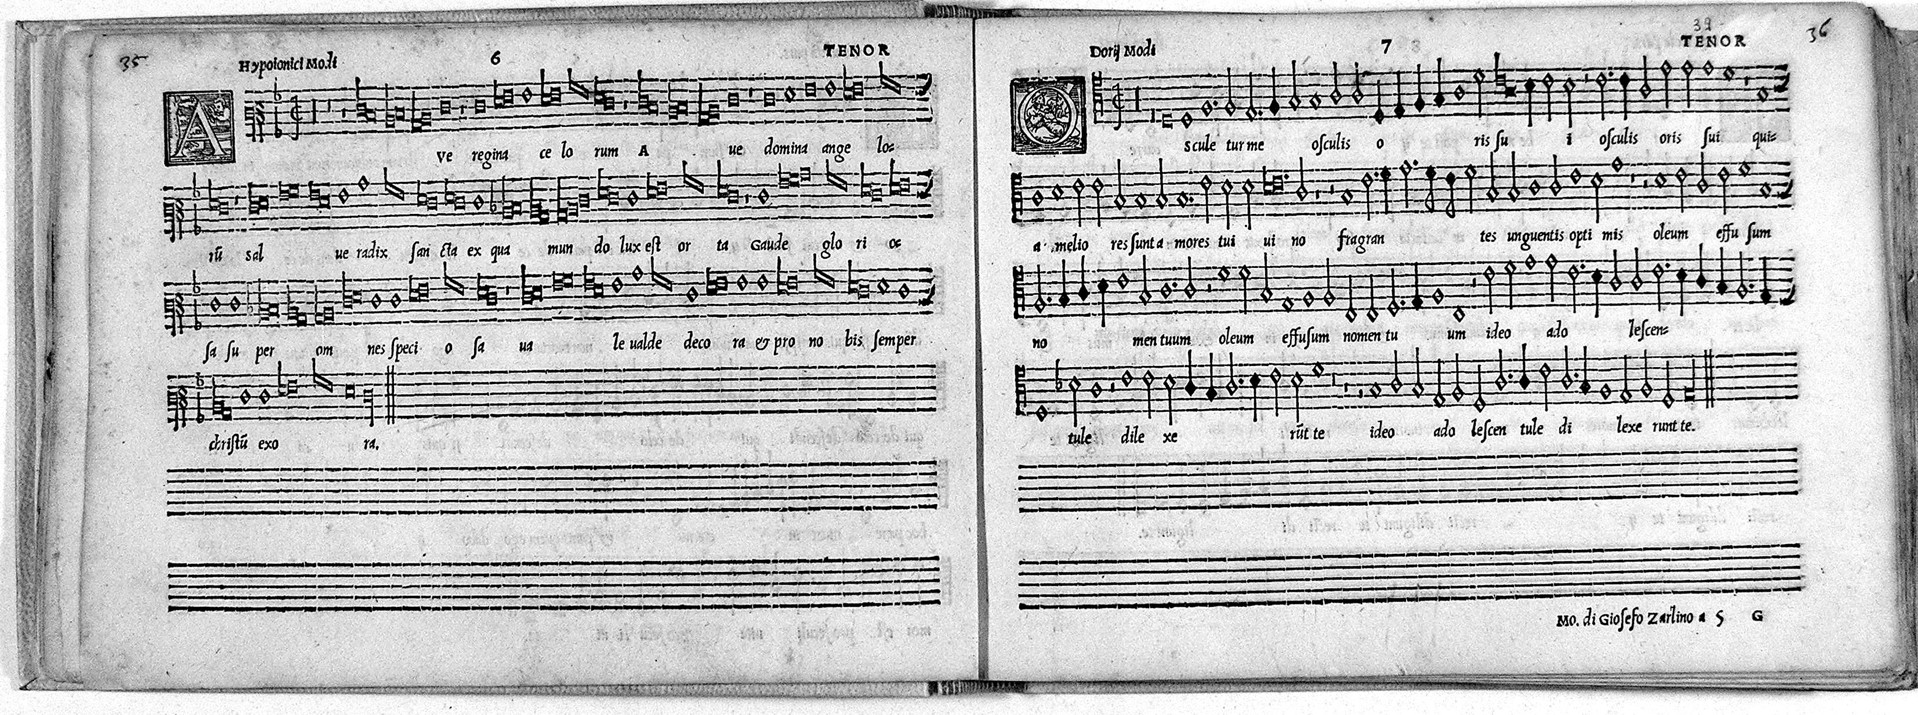 35
Hypoionici Modi 6 TENOR
A ve regina ce lo rum A ue domina ange lo=
rũ sal ue radix san cta ex qua mun do lux est or ta Gaude glo ri o=
sa su per om nes speci o sa ua le ualde deco ra & pro no bis semper
christũ exo ra.
39 36
Dorij Modi 7 TENOR
O scule tur me osculis o ris su i osculis oris sui qui=
a melio res sunt a mores tui ui no fragran tes unguentis opti mis oleum effu sum
no men tuum oleum effusum nomen tu um ideo ado lescen=
tule dile xe rũt te ideo ado lescen tule di lexe runt te.
Mo. di Giosefo Zarlino a 5 G